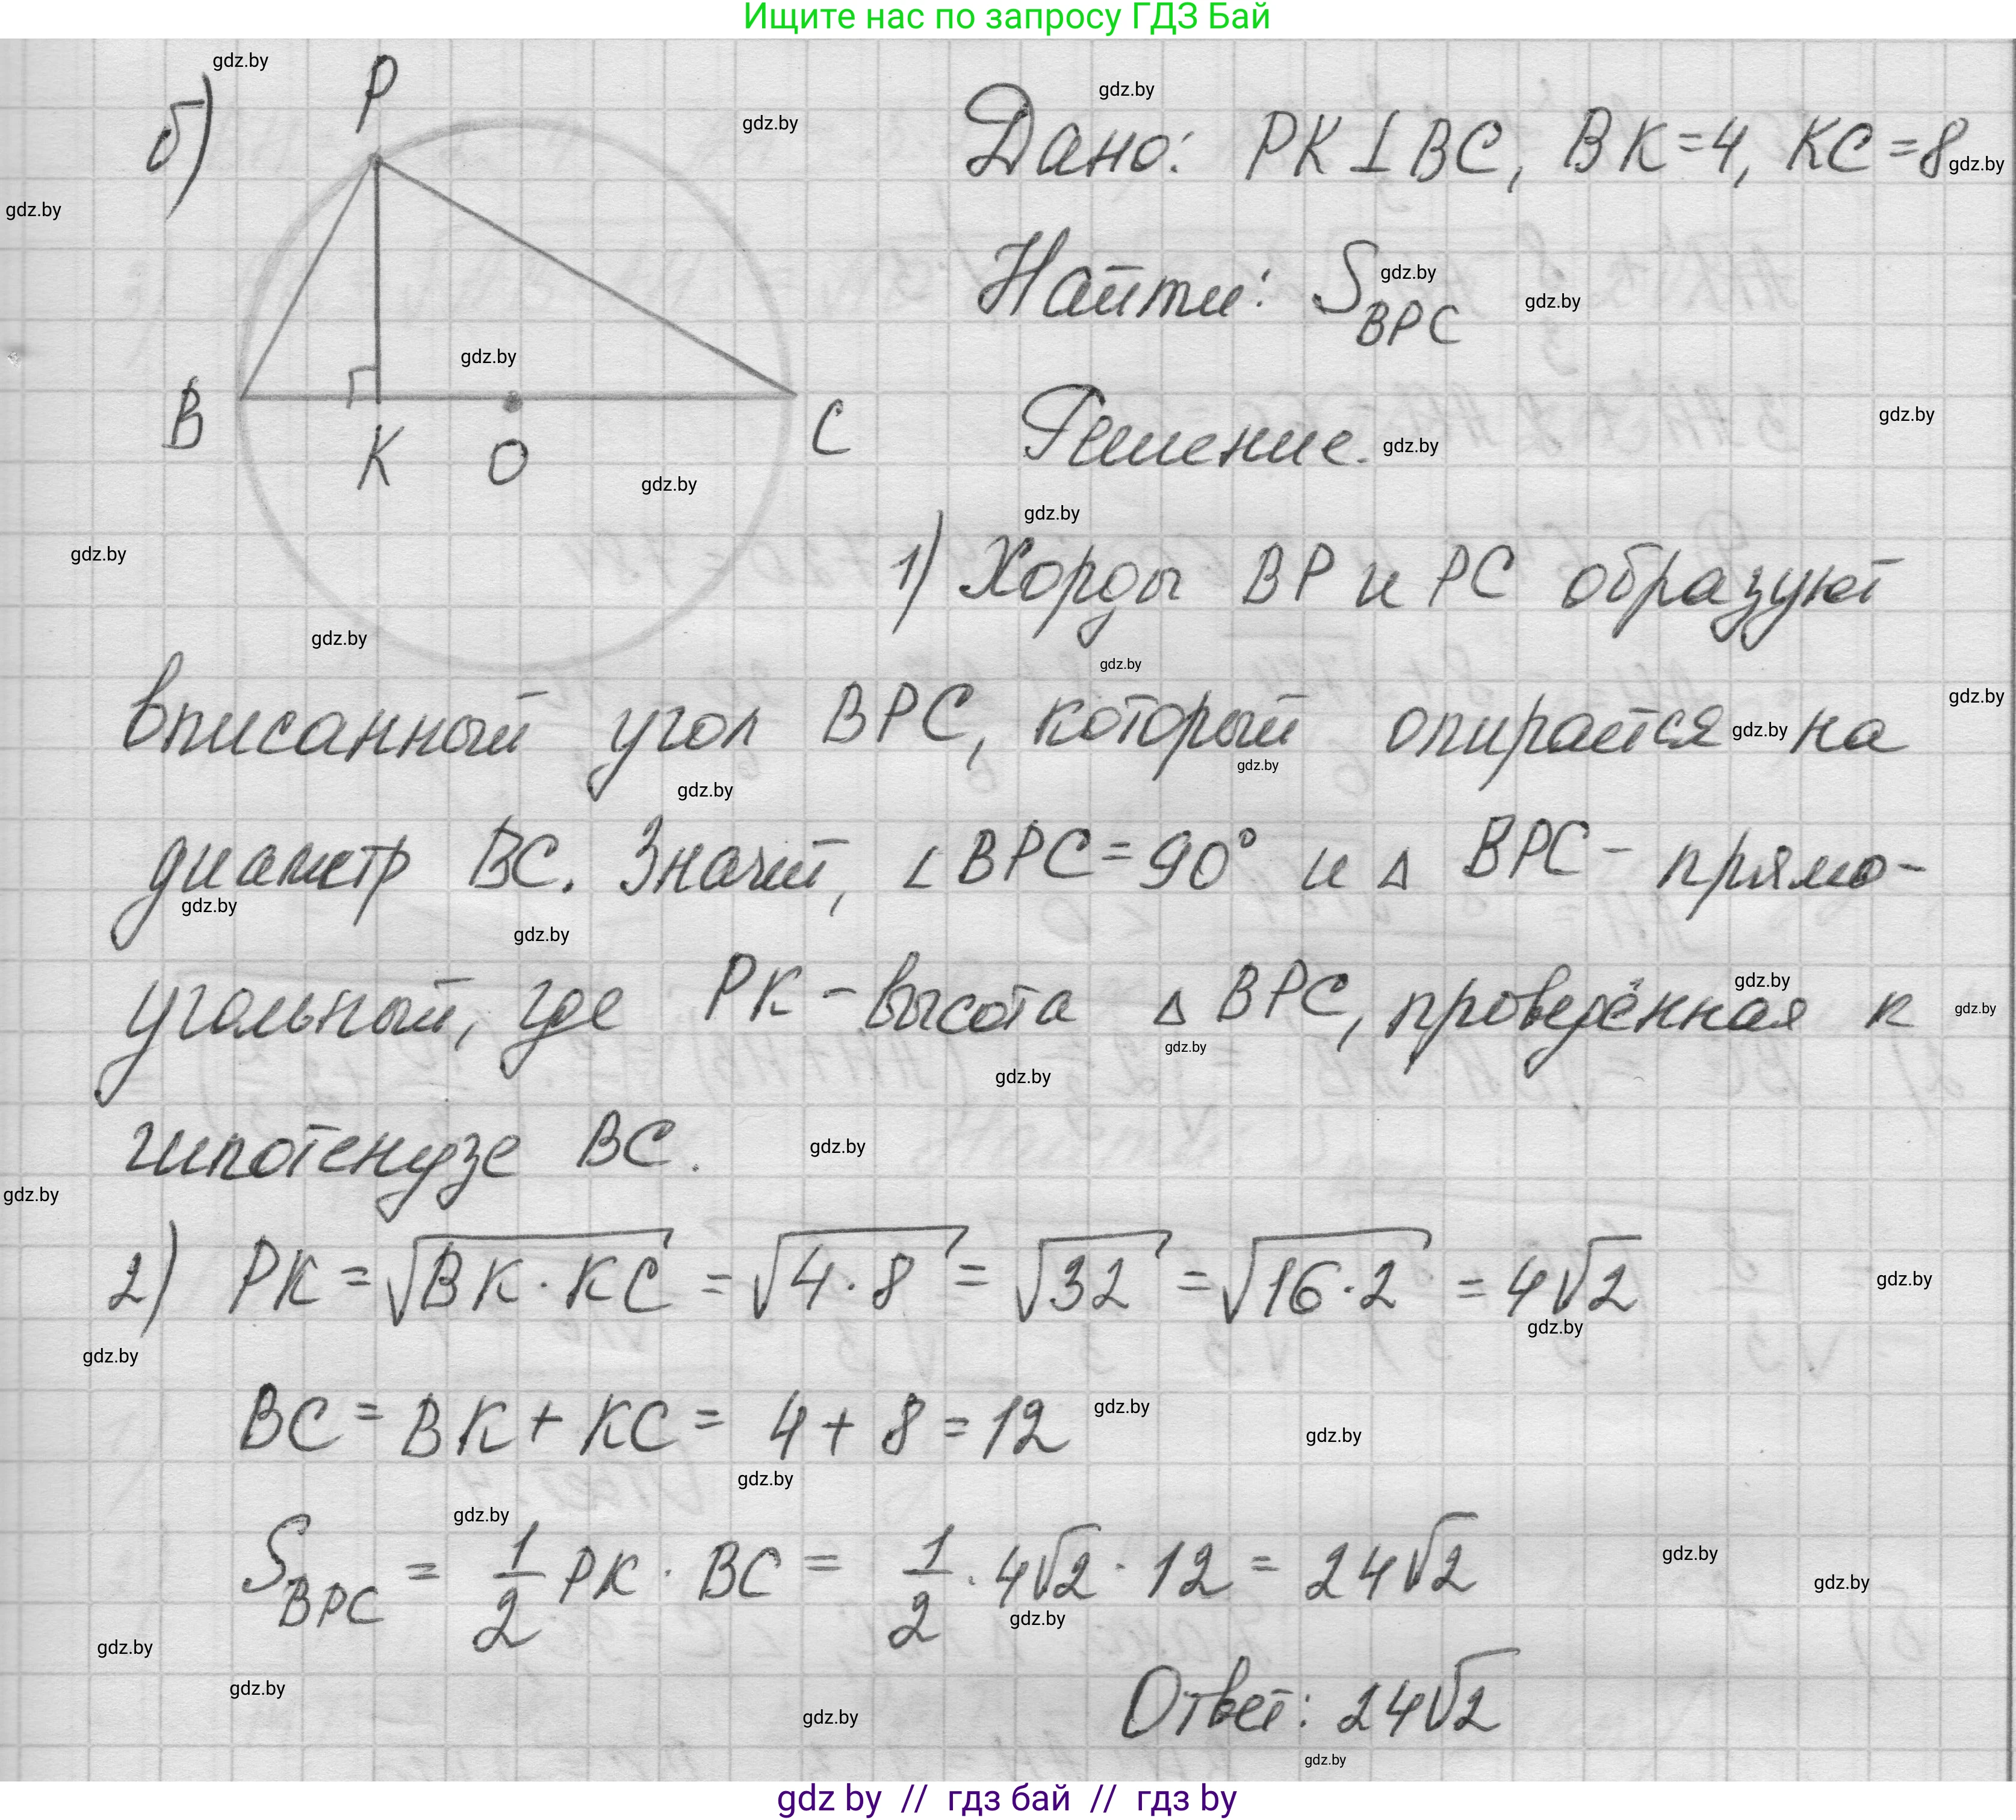 Ищите нас по запросу ГДЗ Бай
б)
P
B
K
O
C
Дано: PK⊥BC, BK=4, KC=8
Найти: S_BPC
Решение.
1) Хорды BP и PC образуют
вписанный угол BPC, который опирается на
диаметр BC. Значит, ∠BPC=90° и △ BPC - прямо-
угольный, где PK - высота △ BPC, проведённая к
гипотенузе BC.
2) PK = √(BK · KC) = √(4 · 8) = √32 = √(16 · 2) = 4√2
BC = BK + KC = 4 + 8 = 12
S_BPC = 1/2 PK · BC = 1/2 · 4√2 · 12 = 24√2
Ответ: 24√2
gdz.by
gdz by // гдз бай // гдз by